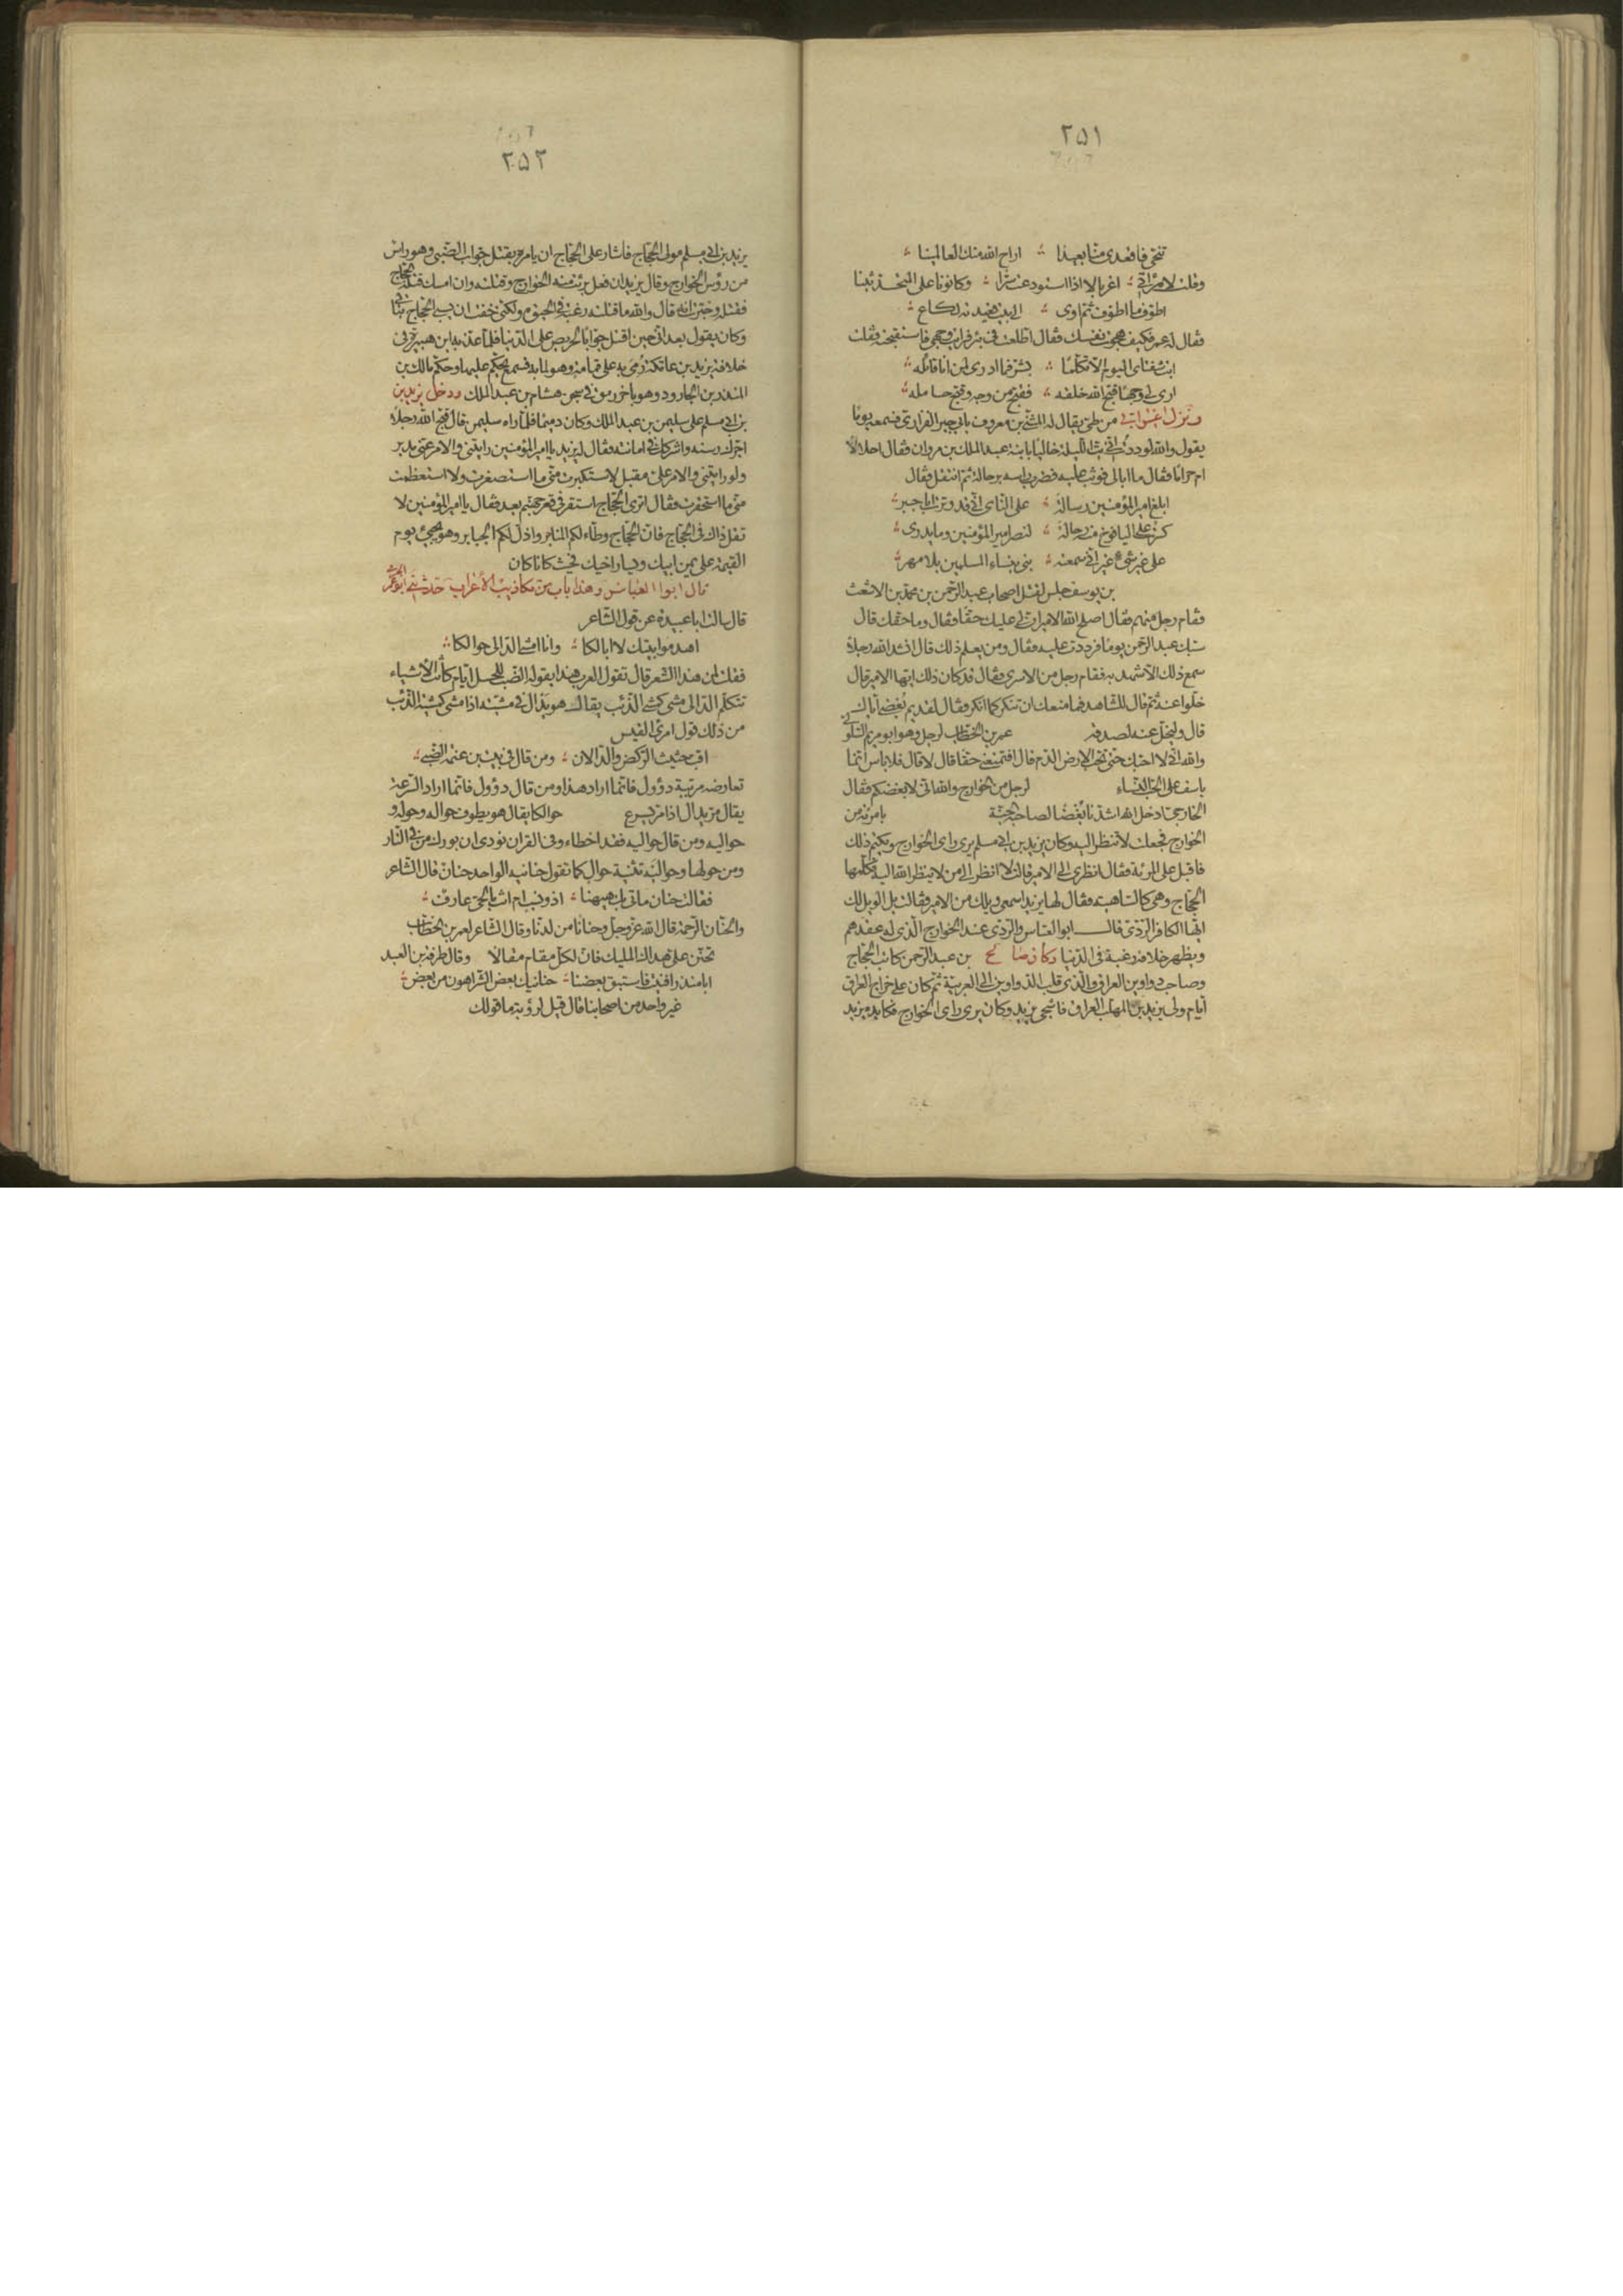 ٢٥١
تنحي فاقعدي منا بعيدا اراح الله منك العالمينا
وقلت لامرأتي اغربالا اذا استودعت سرا وكانونا على المتحدثينا
اطوف ما اطوف ثم اوى الى بيت قعيدته لكاع
فقال له عمر فكيف هجوت نفسك فقال اطلعت في بئر فرايت وجهي فاستقبحته فقلت
ابت شفتاى اليوم الا تكلما بشر فما ادرى لمن انا قائله
ارى لي وجها قبح الله خلقه فقبح من وجه وقبح حامله
ونزل اعرابي من طي يقال له المثنى بن معروف بابي جبر الفزارى فسمعه يوما
يقول والله لوددت اني بت الليلة خاليا بابنة عبد الملك بن مروان فقال احلالا
ام حراما فقال ما ابالى فوثب عليه فضرب راسه برحالة ثم انتقل وقال
ابلغ امير المؤمنين رسالة على الناى اني قد وترت ابا جبر
كسرت على اليافوخ منه رحالة لنصر امير المؤمنين وما يدرى
على غير شيء غير اني سمعته بنى بنساء المسلمين بلا مهر
بن يوسف جلس لقتل اصحاب عبد الرحمن بن محمد بن الاشعث
فقام رجل منهم فقال اصلح الله الامير ان لي عليك حقا فقال وما حقك قال
سبك عبد الرحمن يوما فرددت عليه فقال ومن يعلم ذلك قال انشد الله رجلا
سمع ذلك الا شهد به فقام رجل من الاسرى فقال قد كان ذلك ايها الامير قال
خلوا عنه ثم قال للشاهد فما منعك ان تنكر كما انكر فقال لقديم بغضى اياك
قال وليخل عنه لصدقه عمر بن الخطاب لرجل وهو ابو مريم السلولي
والله اني لا احبك حتى تحب الارض الدم قال افتمنعني حقا قال لا قال فلا باس انما
ياسف على الحب النساء لرجل من الخوارج والله اني لابغضكم فقال
الخارجى ادخل الله اشدنا بغضا لصاحبه الجنة بامرأة من
الخوارج فجعلت لا تنظر اليه وكان يزيد بن ابي مسلم يرى راى الخوارج ويكتم ذلك
فاقبل على المرءة فقال انظرى الى الامير قالت لا انظر الى من لا ينظر الله اليه فكلمها
الحجاج وهي كالساهية فقال لها يزيد اسمعي ويلك من الامير فقالت بل الويل لك
ايها الكافر الردى قال ابو العباس والردى عند الخوارج الذى له عقدهم
ويظهر خلافه رغبة في الدنيا وكان صالح بن عبد الرحمن كاتب الحجاج
وصاحب دواوين العراق والذى قلب الدواوين الى العربية ثم كان على خراج العراق
ايام ولي يزيد بن المهلب العراق فاشجى يزيد وكان يرى راى الخوارج فكايده يزيد
٢٥٢
يزيد بن ابي مسلم مولى الحجاج فاشار على الحجاج ان يامره بقتل جواب الضبي وهو راس
من رؤس الخوارج وقال يزيد ان فعل برئت منه الخوارج وقتلته وان امسك قتله الحجاج
فقتله وخبرت انه قال والله ما قتلته رغبة في الحيوة ولكني خفت ان يسبي الحجاج بناتي
وكان يقول بعد اني حين اقتل جوابا لحريص على الدنيا فلما عذبه ابن هبيرة في
خلافة يزيد بن عاتكة رمى به على قمامة وهو لما به فسمع يحكم عليها وحكم مالك بن
المنذر بن الجارود وهو باخر رمق في سجن هشام بن عبد الملك ودخل يزيد بن
بن ابي مسلم على سليمن بن عبد الملك وكان دميما فلما راه سليمن قال قبح الله رجلا
اجرك رسنه واشركك في امانته فقال له يزيد يا امير المؤمنين رايتني والامر عني مدبر
ولو رايتني والامر علي مقبل لاستكبرت منى ما استصغرت ولاستعظمت
منى ما استحقرت فقال اترى الحجاج استقر في قعر جهنم بعد فقال يا امير المؤمنين لا
تقل ذاك في الحجاج فان الحجاج وطاء لكم المنابر واذل لكم الجبابر وهو يجيء يوم
القيمة على يمين ابيك ويسار اخيك فحيث كانا كان
قال ابوا العباس وهذا باب من تكاذيب الاعراب حدثني ابو عمر الجرمي
قال سالت ابا عبيدة عن قول الشاعر
اهدموا بيتك لا ابا لكا وانا امشى الدالى حوالكا
فقلت لمن هذا الشعر قال تقول العرب هذا يقوله الضب للحسل ايام كانت الاشياء
تتكلم الدالى مشى كمشى الذئب يقال هو يدال في مشيته اذا مشى كمشية الذئب
من ذلك قول امرئ القيس
اقب حثيث الركض والدالان ومن قال في بيت ابن عنمة الضبي
تعارضه مرتبة دؤول فانما اراد هذا ومن قال دؤول فانما اراد السرعة
يقال مر يدال اذا مر يسرع حوالكا يقال هو يطوف حواله وحوله و
حواليه ومن قال حواليه فقد اخطاء وفي القران نودى ان بورك من في النار
ومن حولها وحواليه تثنية حوال كما تقول حنانيه الواحد حنان قال الشاعر
فقالت حنان ما اتى بك هيهنا اذو نسب ام انت بالحي عارف
والحنان الرحمة قال الله عز وجل وحنانا من لدنا وقال الشاعر لعمر بن الخطاب
تحنن على هداك المليك فان لكل مقام مقالا وقال طرفة بن العبد
ابا منذر افنيت فاستبق بعضنا حنانيك بعض الشر اهون من بعض
غير واحد من اصحابنا قال قيل لرؤبة ما قولك